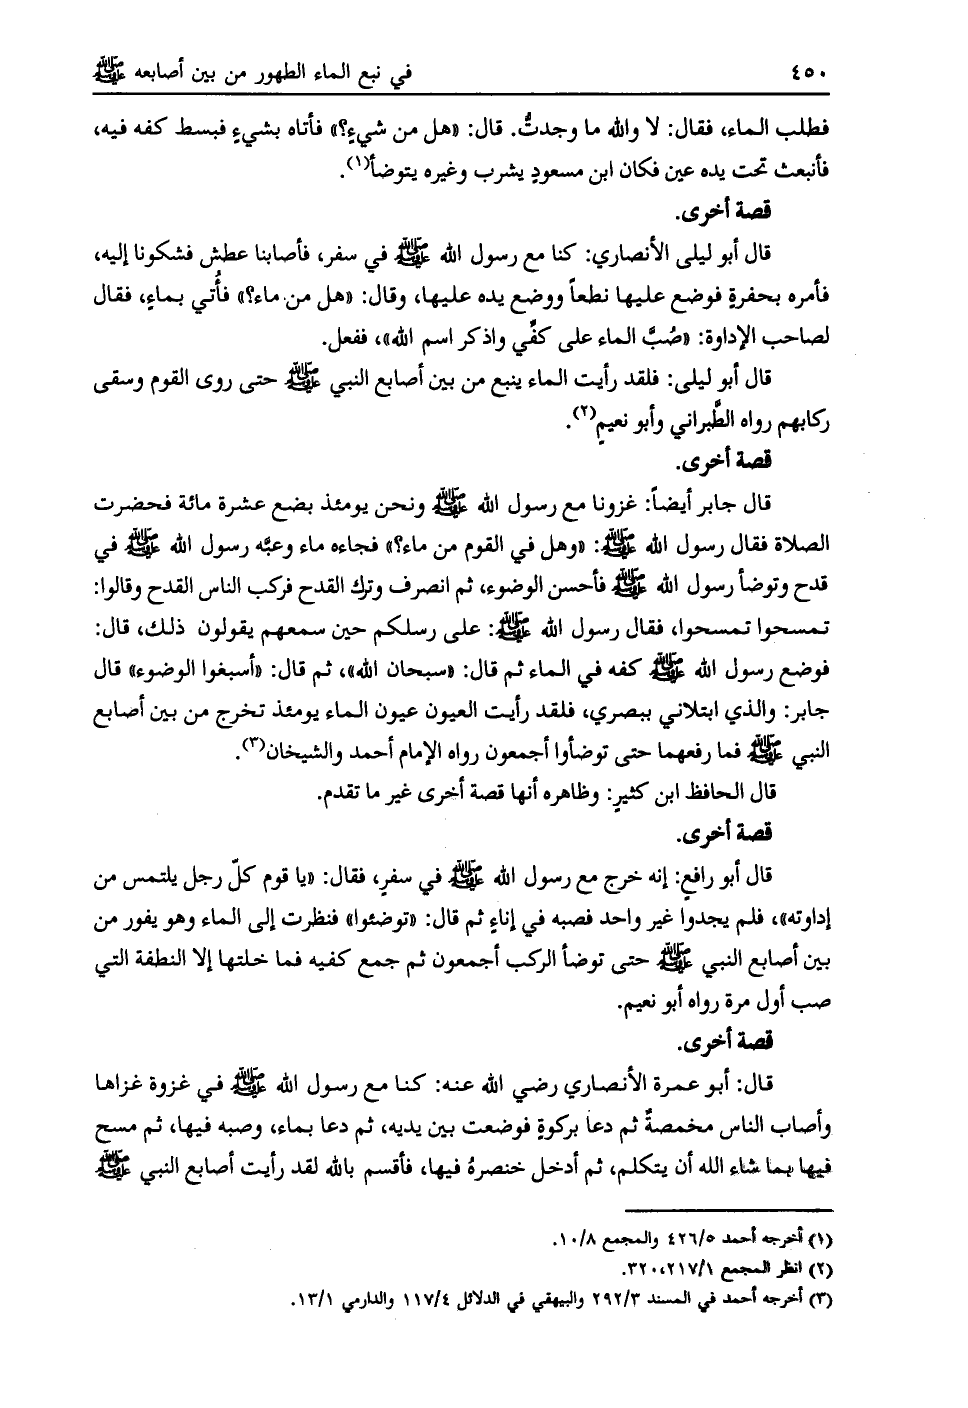 ٤٥٠ في نبع الماء الطهور من بين أصابعه ﷺ
فطلب الماء، فقال: لا والله ما وجدتُّ. قال: «هل من شيءٍ؟» فأتاه بشيءٍ فبسط كفه فيه،
فأنبعث تحت يده عين فكان ابن مسعودٍ يشرب وغيره يتوضأ(١).
قصة أخرى.
قال أبو ليلى الأنصاري: كنا مع رسول الله ﷺ في سفر، فأصابنا عطش فشكونا إليه،
فأمره بحفرةٍ فوضع عليها نطعاً ووضع يده عليها، وقال: «هل من ماء؟» فأُتي بماءٍ، فقال
لصاحب الإداوة: «صُبَّ الماء على كفِّي واذكر اسم الله»، ففعل.
قال أبو ليلى: فلقد رأيت الماء ينبع من بين أصابع النبي ﷺ حتى روى القوم وسقى
ركابهم رواه الطَّبراني وأبو نعيمٍ(٢).
قصة أخرى.
قال جابر أيضاً: غزونا مع رسول الله ﷺ ونحن يومئذ بضع عشرة مائة فحضرت
الصلاة فقال رسول الله ﷺ: «وهل في القوم من ماء؟» فجاءه ماء وعبَّه رسول الله ﷺ في
قدح وتوضأ رسول الله ﷺ فأحسن الوضوء، ثم انصرف وترك القدح فركب الناس القدح وقالوا:
تمسحوا تمسحوا، فقال رسول الله ﷺ: على رسلكم حين سمعهم يقولون ذلك، قال:
فوضع رسول الله ﷺ كفه في الماء ثم قال: «سبحان الله»، ثم قال: «أسبغوا الوضوء» قال
جابر: والذي ابتلاني ببصري، فلقد رأيت العيون عيون الماء يومئذ تخرج من بين أصابع
النبي ﷺ فما رفعهما حتى توضأوا أجمعون رواه الإمام أحمد والشيخان(٣).
قال الحافظ ابن كثيرٍ: وظاهره أنها قصة أخرى غير ما تقدم.
قصة أخرى.
قال أبو رافعٍ: إنه خرج مع رسول الله ﷺ في سفرٍ، فقال: «يا قوم كلّ رجل يلتمس من
إداوته»، فلم يجدوا غير واحد فصبه في إناءٍ ثم قال: «توضئوا» فنظرت إلى الماء وهو يفور من
بين أصابع النبي ﷺ حتى توضأ الركب أجمعون ثم جمع كفيه فما خلتها إلا النطفة التي
صب أول مرة رواه أبو نعيم.
قصة أخرى.
قال: أبو عمرة الأنصاري رضي الله عنه: كنا مع رسول الله ﷺ في غزوة غزاها
وأصاب الناس مخمصةٌ ثم دعا بركوةٍ فوضعت بين يديه، ثم دعا بماء، وصبه فيها، ثم مسح
فيها بما شاء الله أن يتكلم، ثم أدخل خنصرهُ فيها، فأقسم بالله لقد رأيت أصابع النبي ﷺ
(١) أخرجه أحمد ٤٢٦/٥ والمجمع ١٠/٨.
(٢) انظر المجمع ٢١٧/١، ٣٢٠.
(٣) أخرجه أحمد في المسند ٢٩٢/٣ والبيهقي في الدلائل ١١٧/٤ والدارمي ١٣/١.